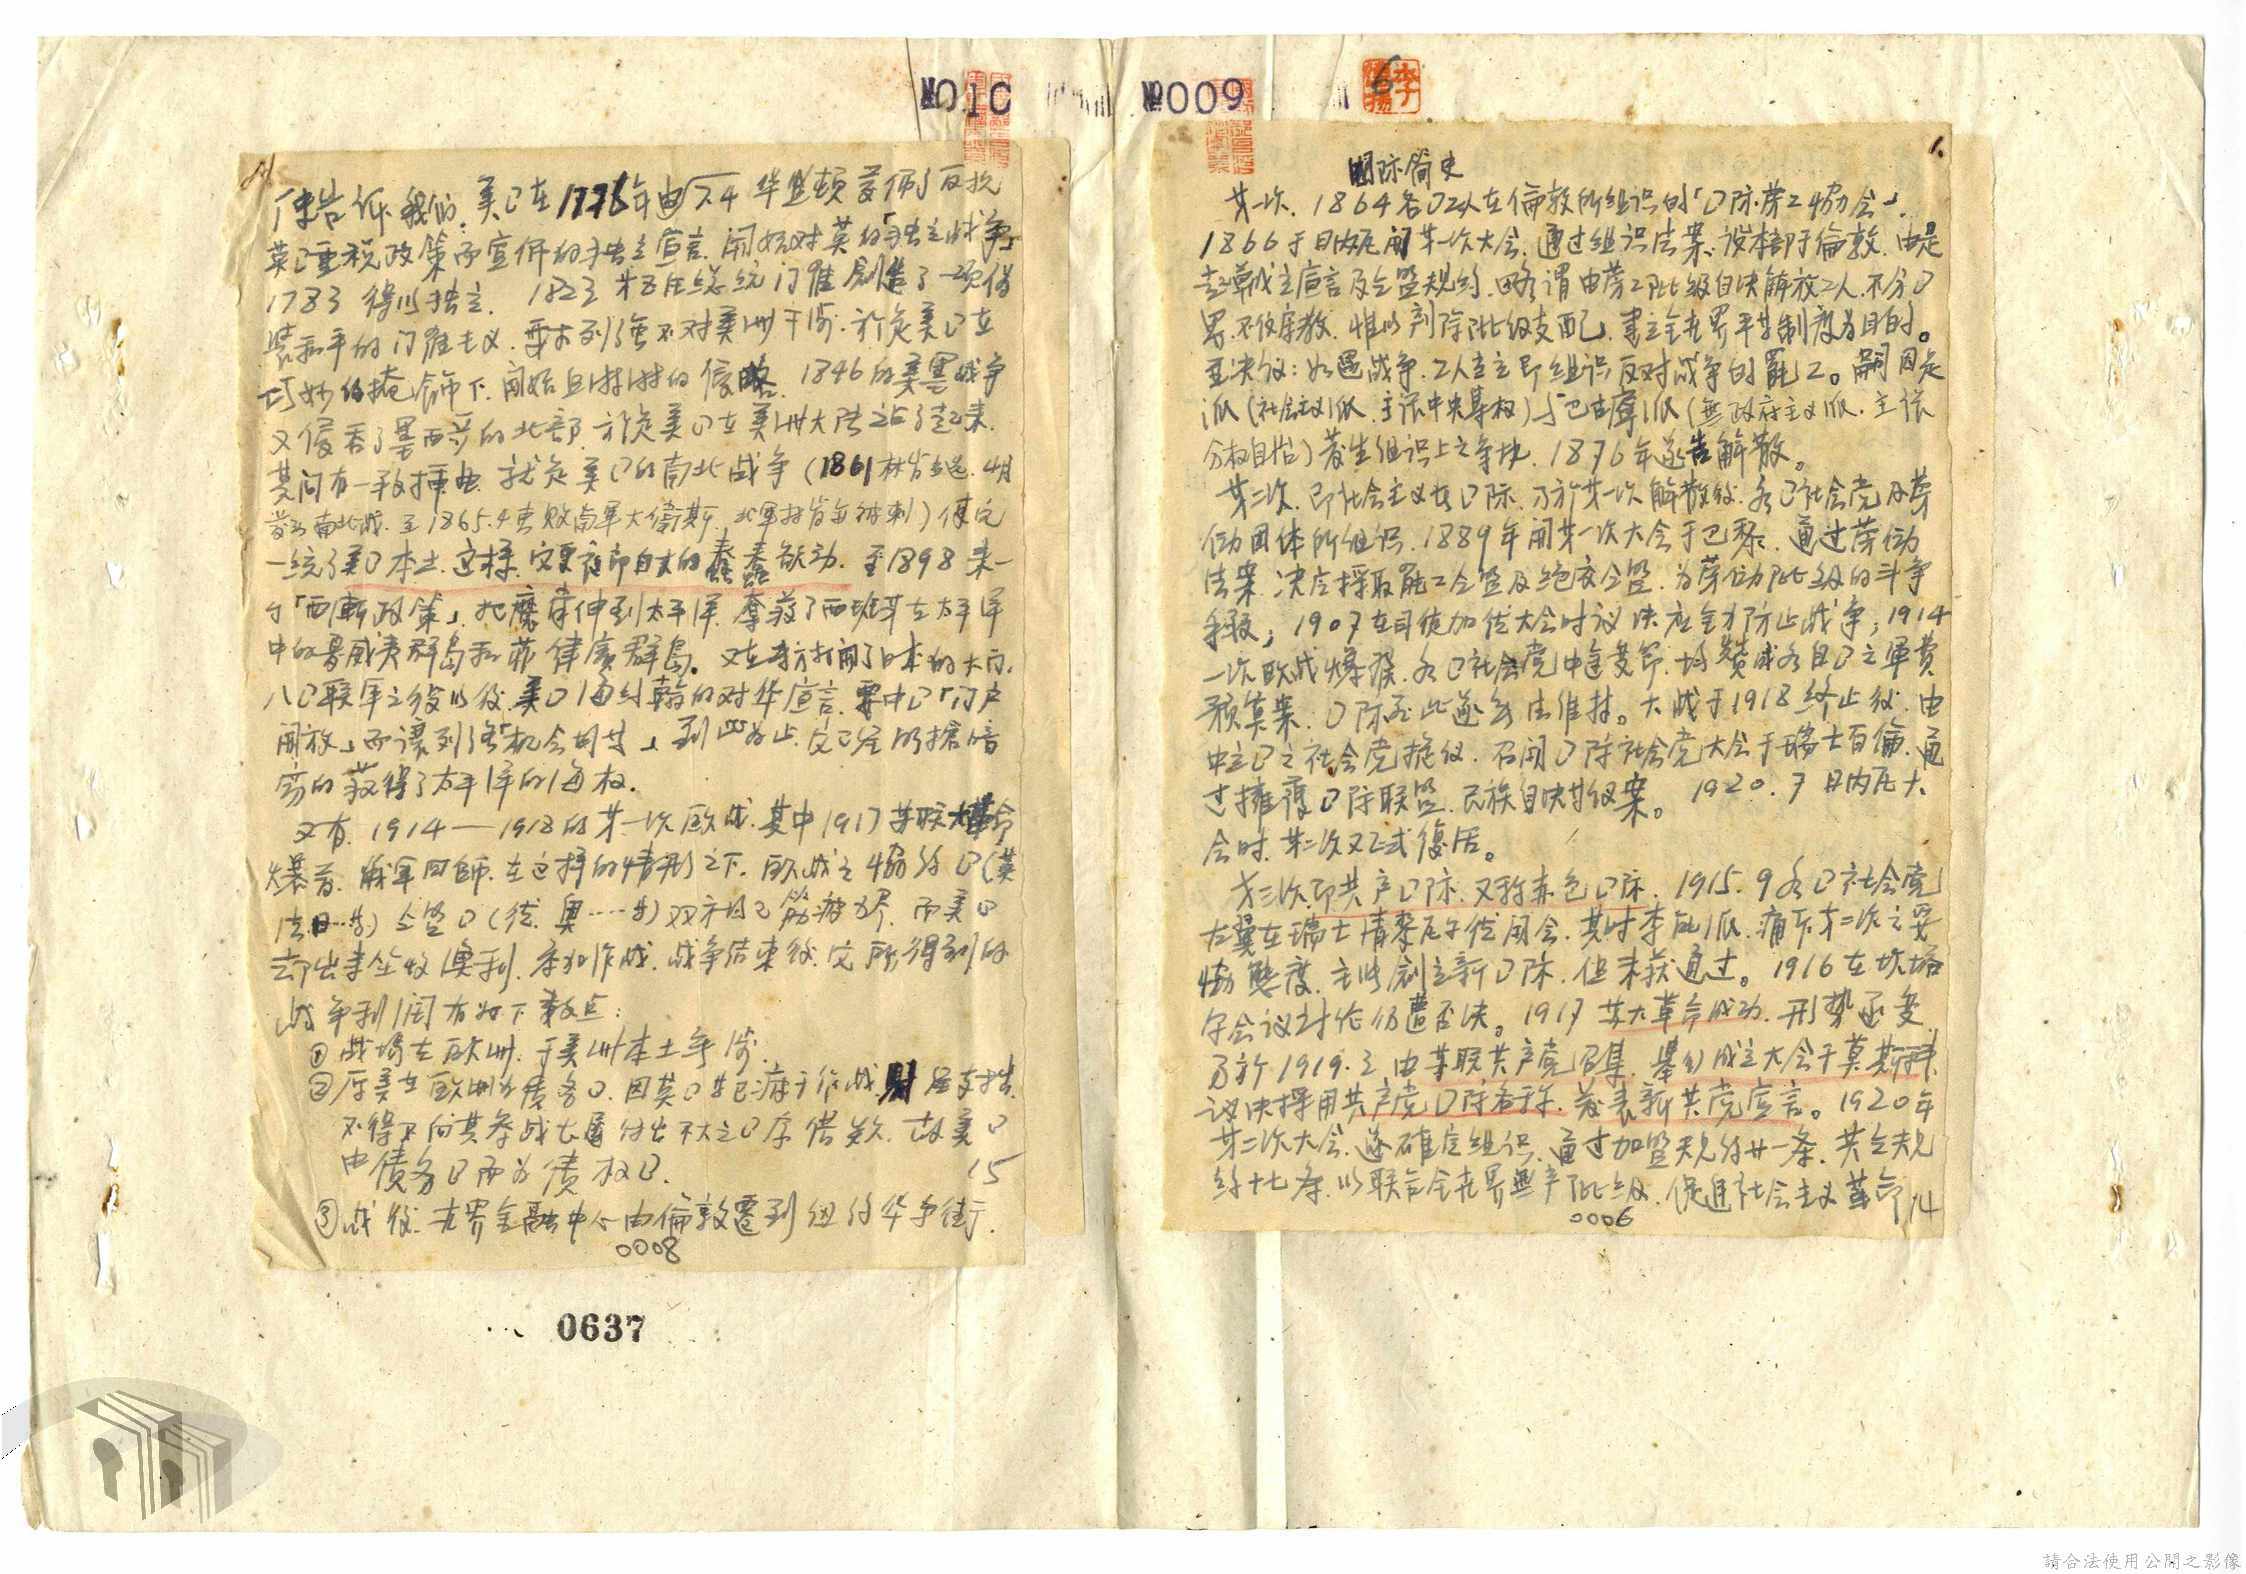 №009
6
1.
国际简史
第一次. 1864各口工人在倫敦所组识的「口际劳工協会」.
1866于日内瓦開第一次大会.通过组识法案.设本部于倫敦.由是
起草成立宣言及仝盟規约.略謂由劳工阶级自决解放工人.不分口
界.不仅宗教.惟以剷除阶级支配.書立全世界平等制度为目的。
並决仪:如遇战争.工人当立即组识反对战争的罷工。嗣因
派(社会主义派.主张中央集权)与巴古寧派(無政府主义派.主张
分权自治)发生组识上之争执.1876年遂告解散。
第二次.即社会主义者口际.乃於第一次解散後.各口社会党及劳
働团体所组识.1889年開第一次大会于巴黎.通过劳働
法案.决定採取罷工仝盟及絕交仝盟.为劳働阶级的斗争
手段;1907在司徒加徒大会时议决应全力防止战争;1914
一次欧战爆發.各口社会党中途变节.均赞成各自口之軍費
预算案.口际至此遂無法维持。大战于1918终止後.由
中立口之社会党提仪.召開口际社会党大会于瑞士百倫.通
过擁護口际联盟.民族自决等仪案。1920.7日内瓦大
会时.第二次又正式復活。
第三次.即共产口际.又称赤色口际.1915.9各口社会党
左翼在瑞士清黎瓦尔徒開会.其时李甯派.痛斥第二次之妥
協態度.主张創立新口际.但未获通过。1916在坎塔
尔会议讨论仍遭否决。1917苏大革命成功.形势丕变.
乃於1919.3.由苏联共产党召集.舉行成立大会于莫斯科.
议决採用共产党口际名称.发表新共党宣言。1920年
第二次大会.遂確定组识.通过加盟規约廿一条.共仝規
约十七条.以联合全世界無产阶级.促進社会主义革命
14
0006
№010
史告诉我們.美口在1776年由7.4华盛頓發佈了反抗
英口重税政策而宣佈的独立宣言.開始对英的「独立战争」
1783得以独立.1823第五任总统门羅創造了一项偽
裝和平的门羅主义.要求列强不对美洲干涉.於是美口在
巧妙的掩飾下.開始且漸漸的侵略.1846的美墨战争
又侵吞了墨西哥的北部.於是美口在美洲大陆站了起来.
其间有一段插曲.就是美口的南北战争(1861林肯当选.4月
發生南北战.至1865.4击败南軍大衛斯.北軍林肯每被刺)便完
一统了美口本土.这样.它更夜郎自大的蠢蠢欲动.至1898来一
个「西漸政策」.把魔掌伸到太平洋.奪获了西班牙在太平洋
中的夏威夷群岛和菲律賓群島。又在東方打開了日本的大门.
八口联軍之役以後.美口海约翰的对华宣言.要中口「门户
開放」而讓列强「机会均等」到此为止.它已经明搶暗
奪的获得了太平洋的海权.
又有.1914—1918的第一次欧战.其中1917苏联大革命
爆發.俄軍回師.在这样的情形之下.欧战之協约口(英
法日……等)仝盟口(德.奥……等)双方均已筋疲力尽.而美口
却出来坐收漁利.参加作战.战争结束後.它所得到的
战争利潤有如下数点:
①战場在欧洲.于美洲本土無涉.
②原美在欧洲为债务口.因英口等已疲于作战.财经支拙.
不得不向其参战太遲付出不大之口库借欵.故美口
由债务口而为债权口.
15
③战後.世界金融中心由倫敦遷到纽约华尔街.
0008
0637
請合法使用公開之影像